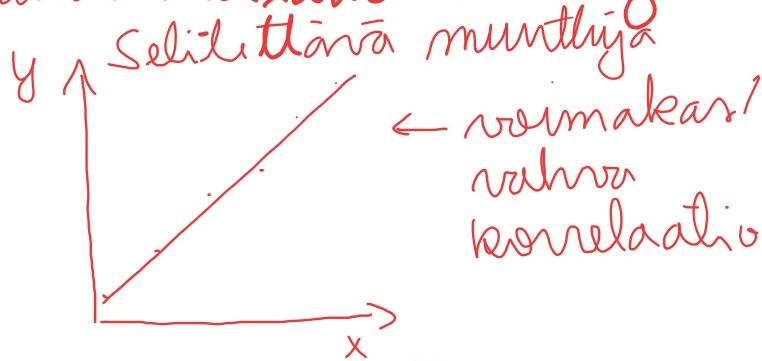 y Selitettävä muuttuja
← voimakas/
vahva
korrelaatio
x